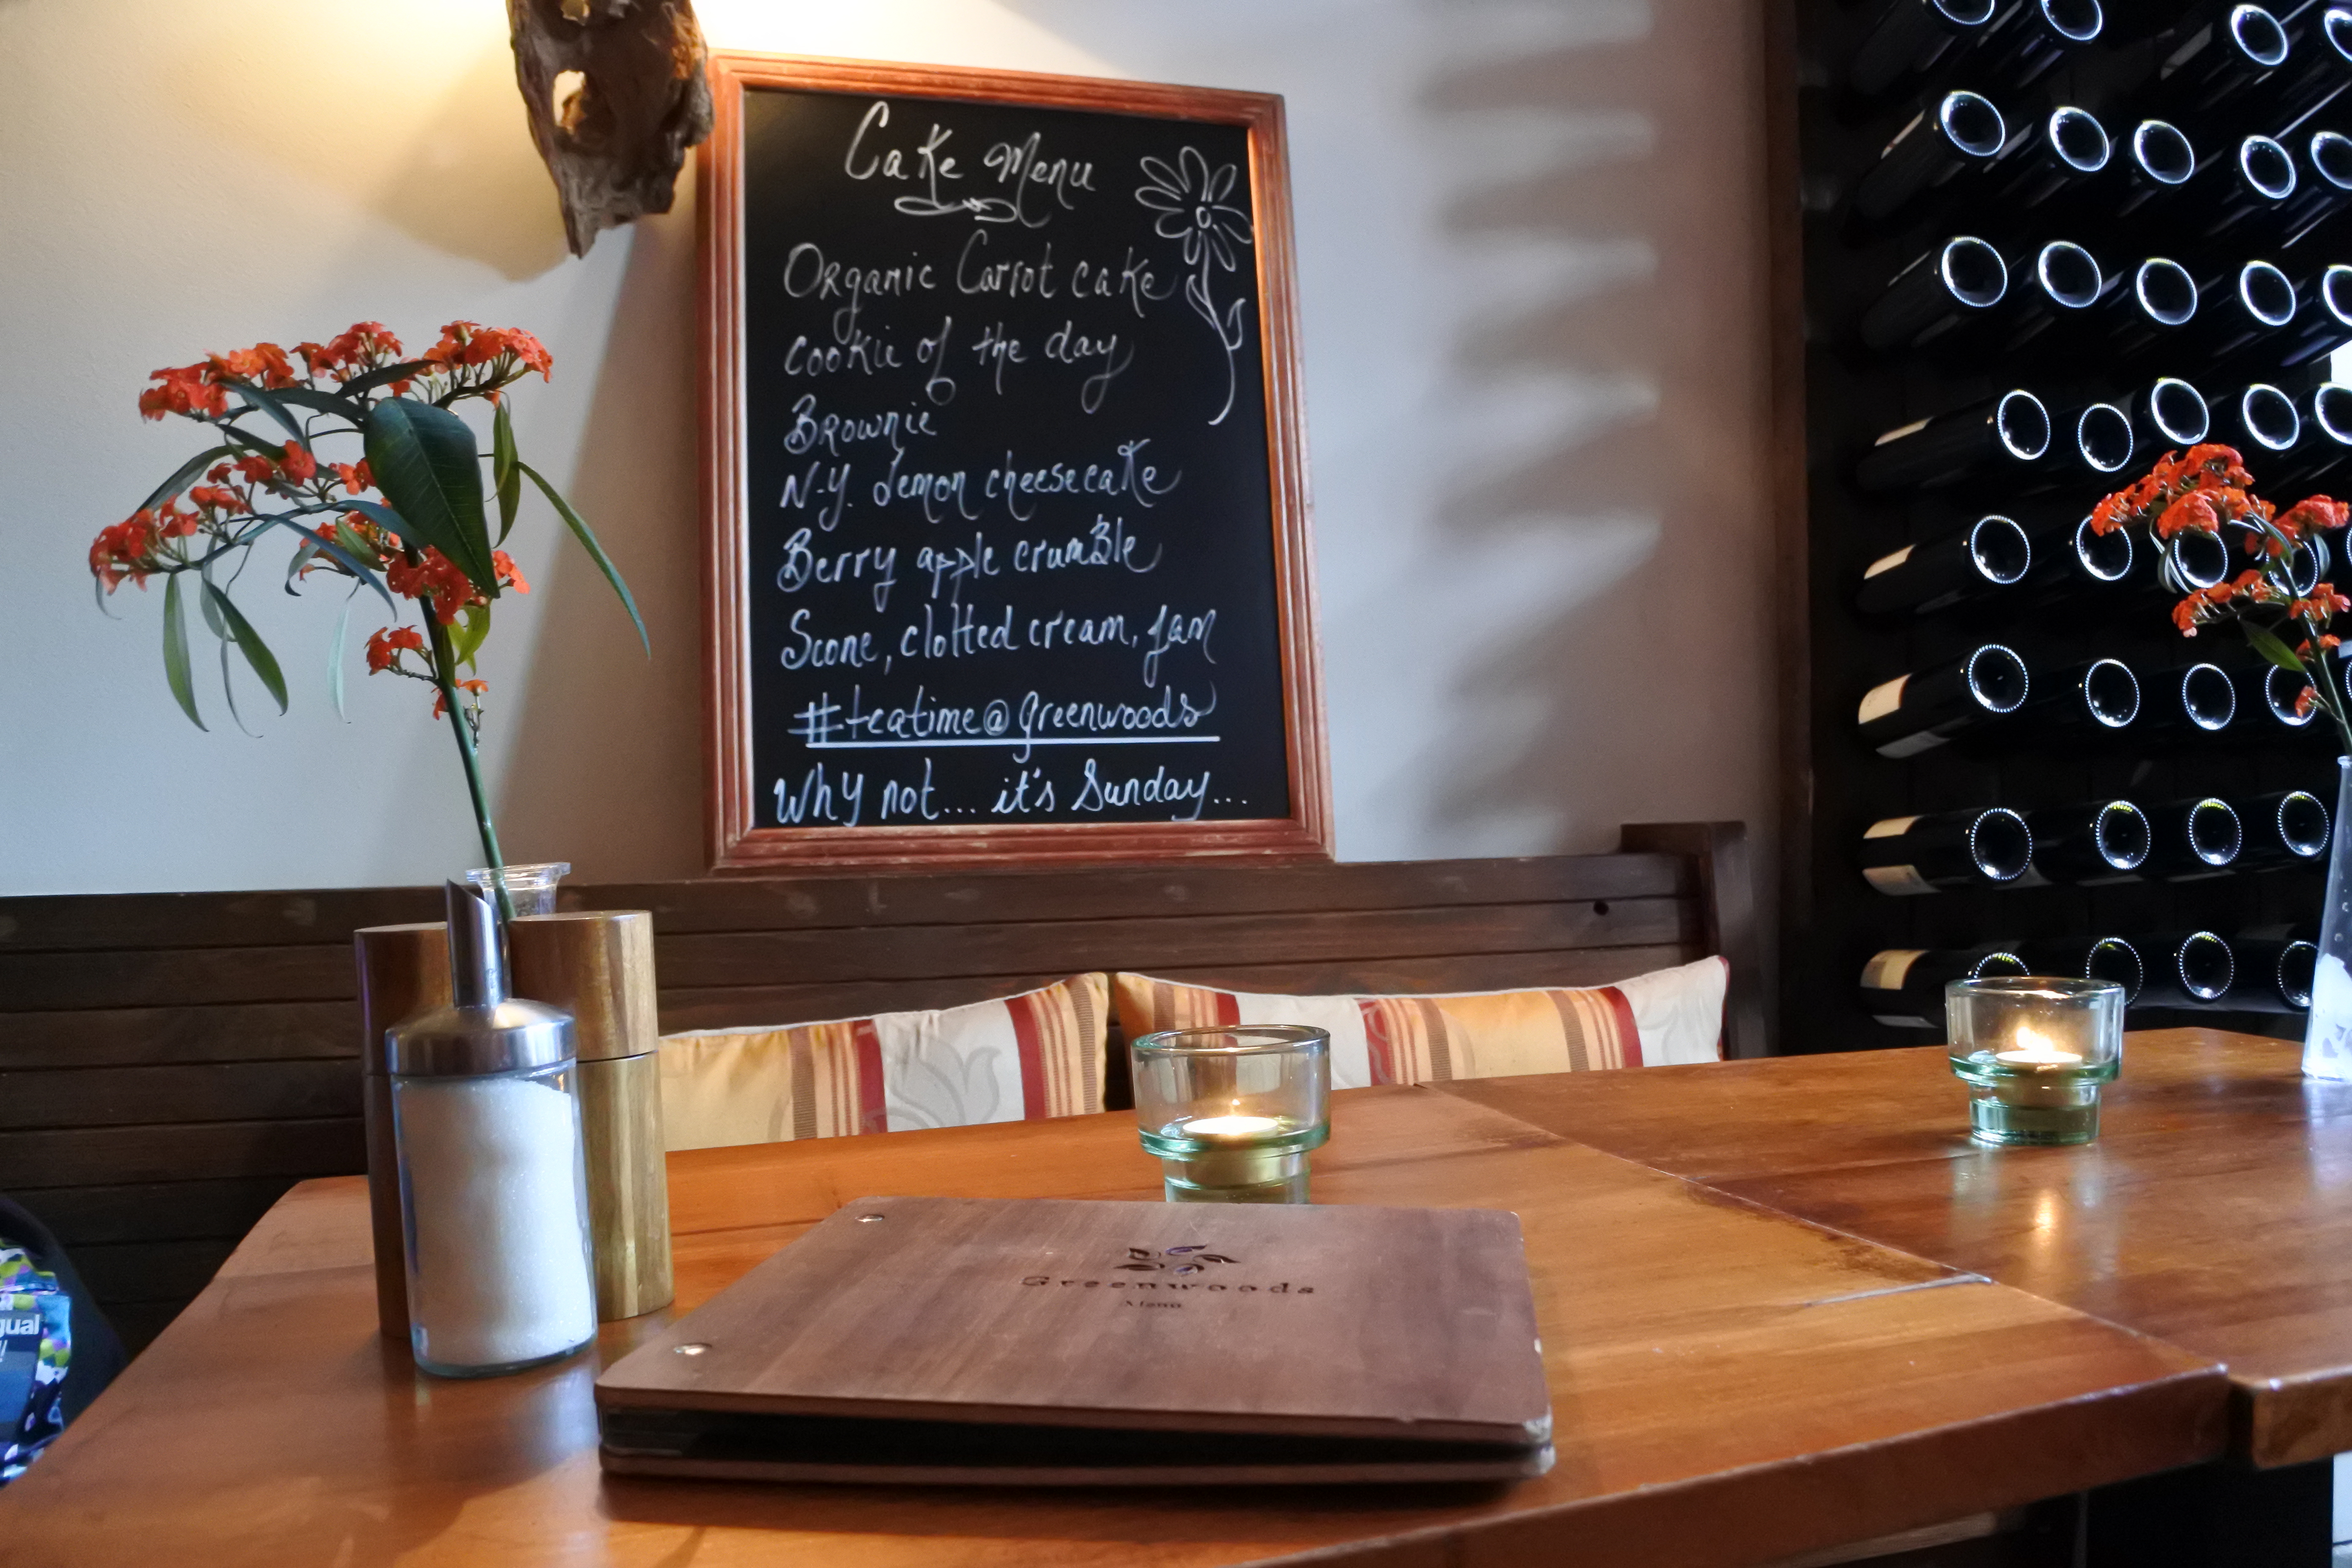 Cake Menu
Organic Carrot cake
Cookie of the day
Brownie
N.Y. Lemon cheesecake
Berry apple crumble
Scone, clotted cream, jam
#teatime@greenwoods
Why not... it's Sunday...
Greenwoods
Menu
gual